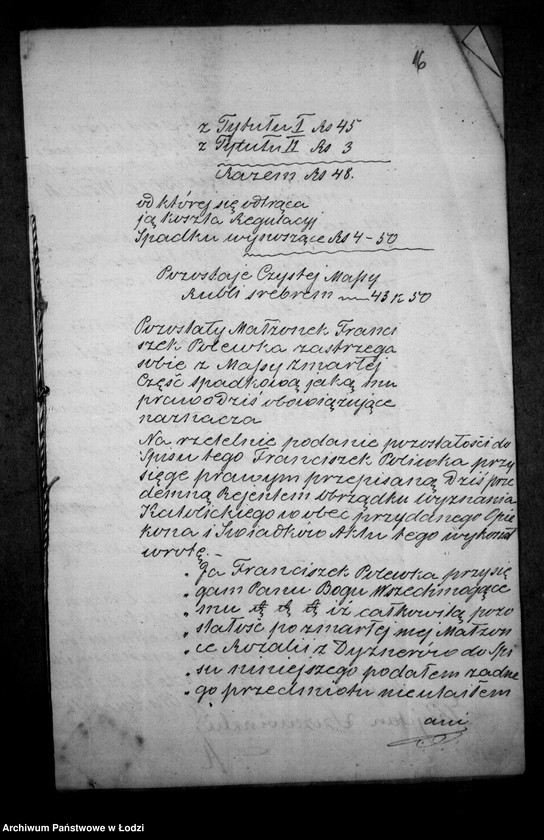 16
z Tytułu I Rs 45
z Tytułu II Rs 3
Razem Rs 48.
od której się odtrąca
ją koszta Regulacyj
Spadku wynoszące Rs 4-50
Pozostaje Czystej Massy
Rubli srebrem 43 k 50
Pozostały Małżonek Franci
szek Polewka zastrzega
sobie z Massy zmarłej
Część spadkową jaką mu
prawo dziś obowiązujące
naznacza
Na rzetelnie podanie pozostałości do
Spisu tego Franciszek Poliwka przy
sięgę prawem przepisaną dziś prze
demną Rejentem obrządku wyznania
Katolickiego wobec przydanego Opie
kona i Świadków Aktu tego wykonał
w rotę. -
„Ja Franciszek Polewka przysię
„gam Panu Bogu Wszechmogące
„mu iż całkowitą pozo
„stałość po zmarłej mej Małżon
„ce Rozalii z Dyznerów do Spi
„su niniejszego podałem żadne
„go przedmiotu nieutaiłem
ani
Archiwum Państwowe w Łodzi